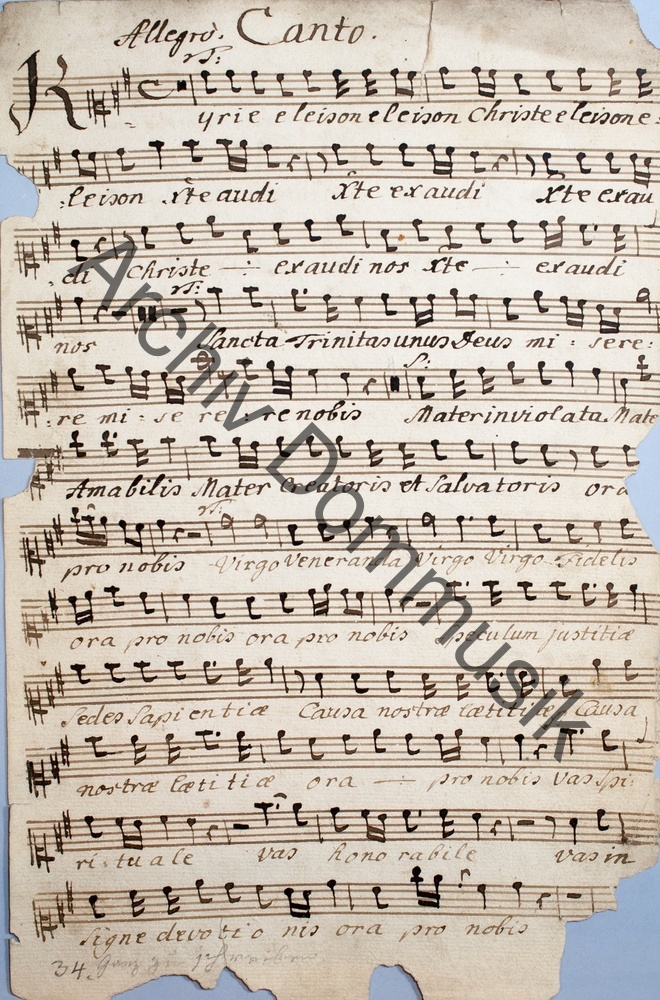 Allegro. Canto.
T:
Kyrie eleison eleison Christe eleison e-
:leison Xte audi Xte exaudi Xte exau
di Christe —:— exaudi nos Xte —:— exaudi
T:
nos Sancta Trinitas unus Deus mi : sere:
S:
re mi : se re : re nobis Mater inviolata Mate
Amabilis Mater Creatoris et Salvatoris ora
T:
pro nobis Virgo Veneranda Virgo Virgo Fidelis
ora pro nobis ora pro nobis Speculum justitiæ
Sedes Sapientiæ Causa nostræ lætitiæ Causa
nostræ lætitiæ ora —:— pro nobis Vas Spi:
ri:tuale vas honorabile vas in
signe devotio nis ora pro nobis
34.
Archiv Dommusik